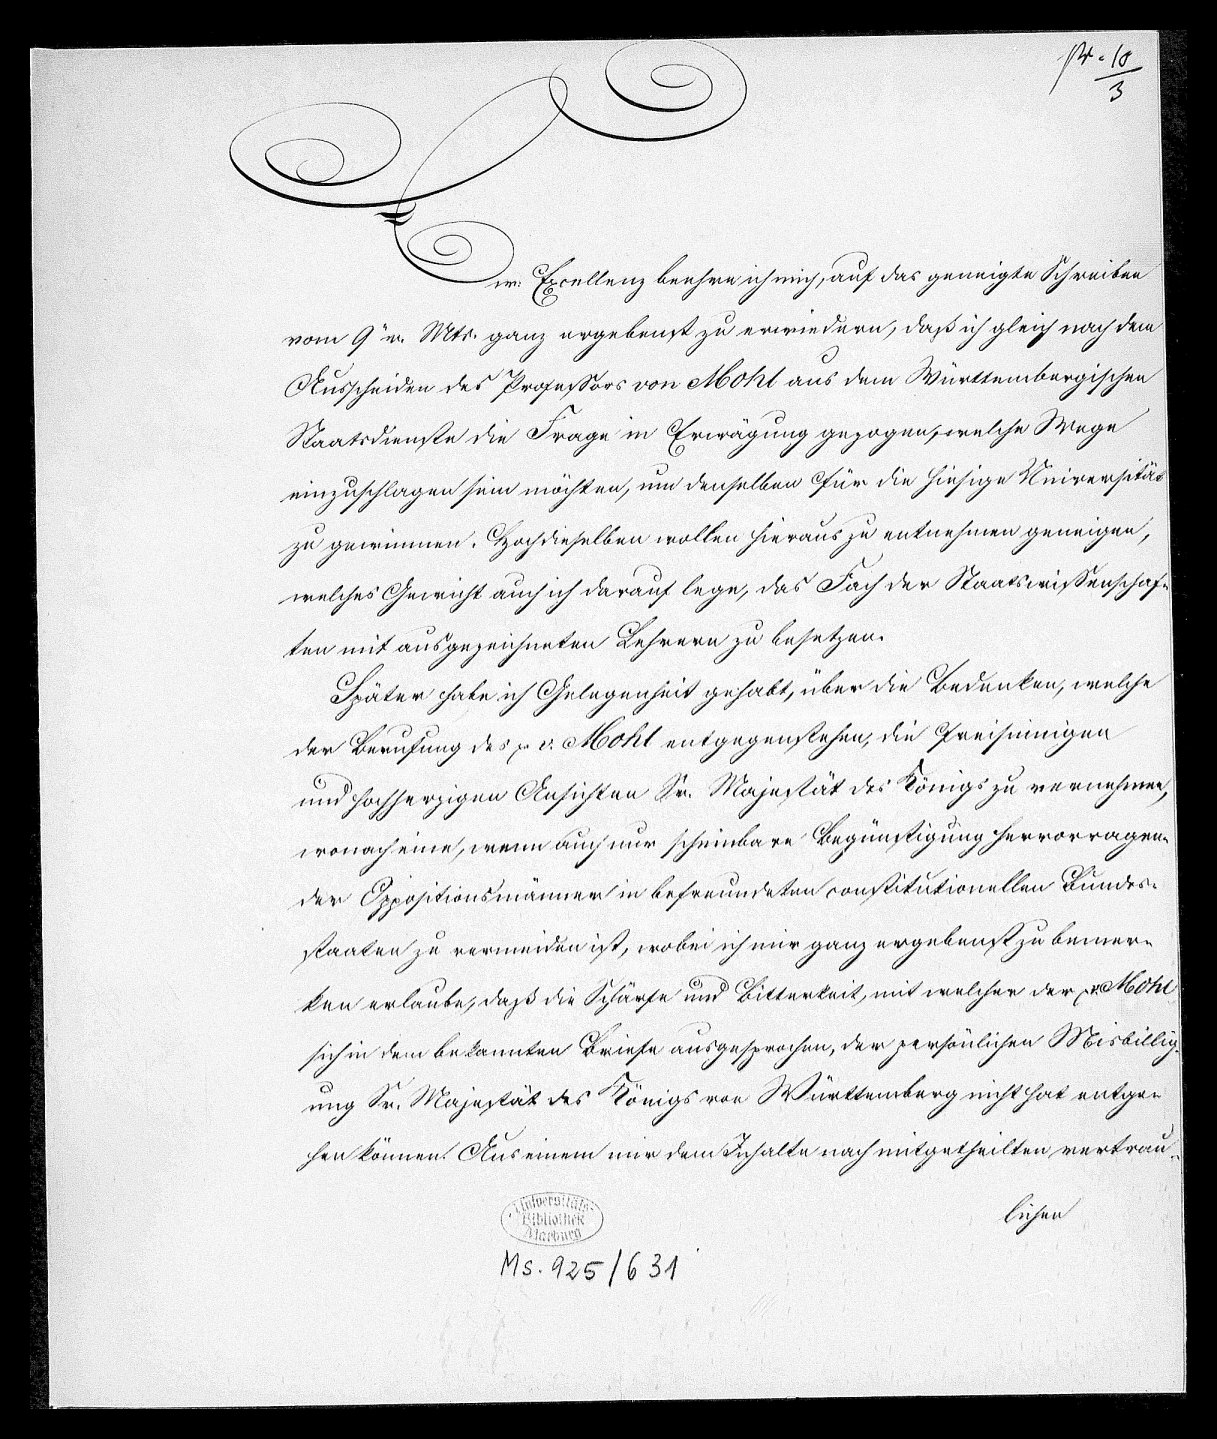 pr. 10/3
Ew. Excellenz beehre ich mich, auf das geneigte Schreiben
vom 9ten v. Mts. ganz ergebenst zu erwiedern, daß ich gleich nach dem
Ausscheiden des Professors von Mohl aus dem Württembergischen
Staatsdienste die Frage in Erwägung gezogen, welche Wege
einzuschlagen sein möchten, um denselben für die hiesige Universität
zu gewinnen. Hochdieselben wollen hieraus zu entnehmen geneigen,
welches Gewicht auch ich darauf lege, das Fach der Staatswissenschaf-
ten mit ausgezeichneten Lehrern zu besetzen.
Später habe ich Gelegenheit gehabt, über die Bedenken, welche
der Berufung des p. v. Mohl entgegenstehen, die freisinnigen
und hochherzigen Ansichten Sr. Majestät des Königs zu vernehmen,
wonach eine, wenn auch nur scheinbare Begünstigung hervorragen-
der Oppositionsmänner in befreundeten constitutionellen Bundes-
staaten zu vermeiden ist, wobei ich mir ganz ergebenst zu bemer-
ken erlaube, daß die Schärfe und Bitterkeit, mit welcher der p. Mohl
sich in dem bekannten Briefe ausgesprochen, der persönlichen Misbillig-
ung Sr. Majestät des Königs von Württemberg nicht hat entge-
hen können. Aus einem mir dem Inhalte nach mitgetheilten vertrau-
lichen
Universitäts-
Bibliothek
Marburg
Ms. 925/631